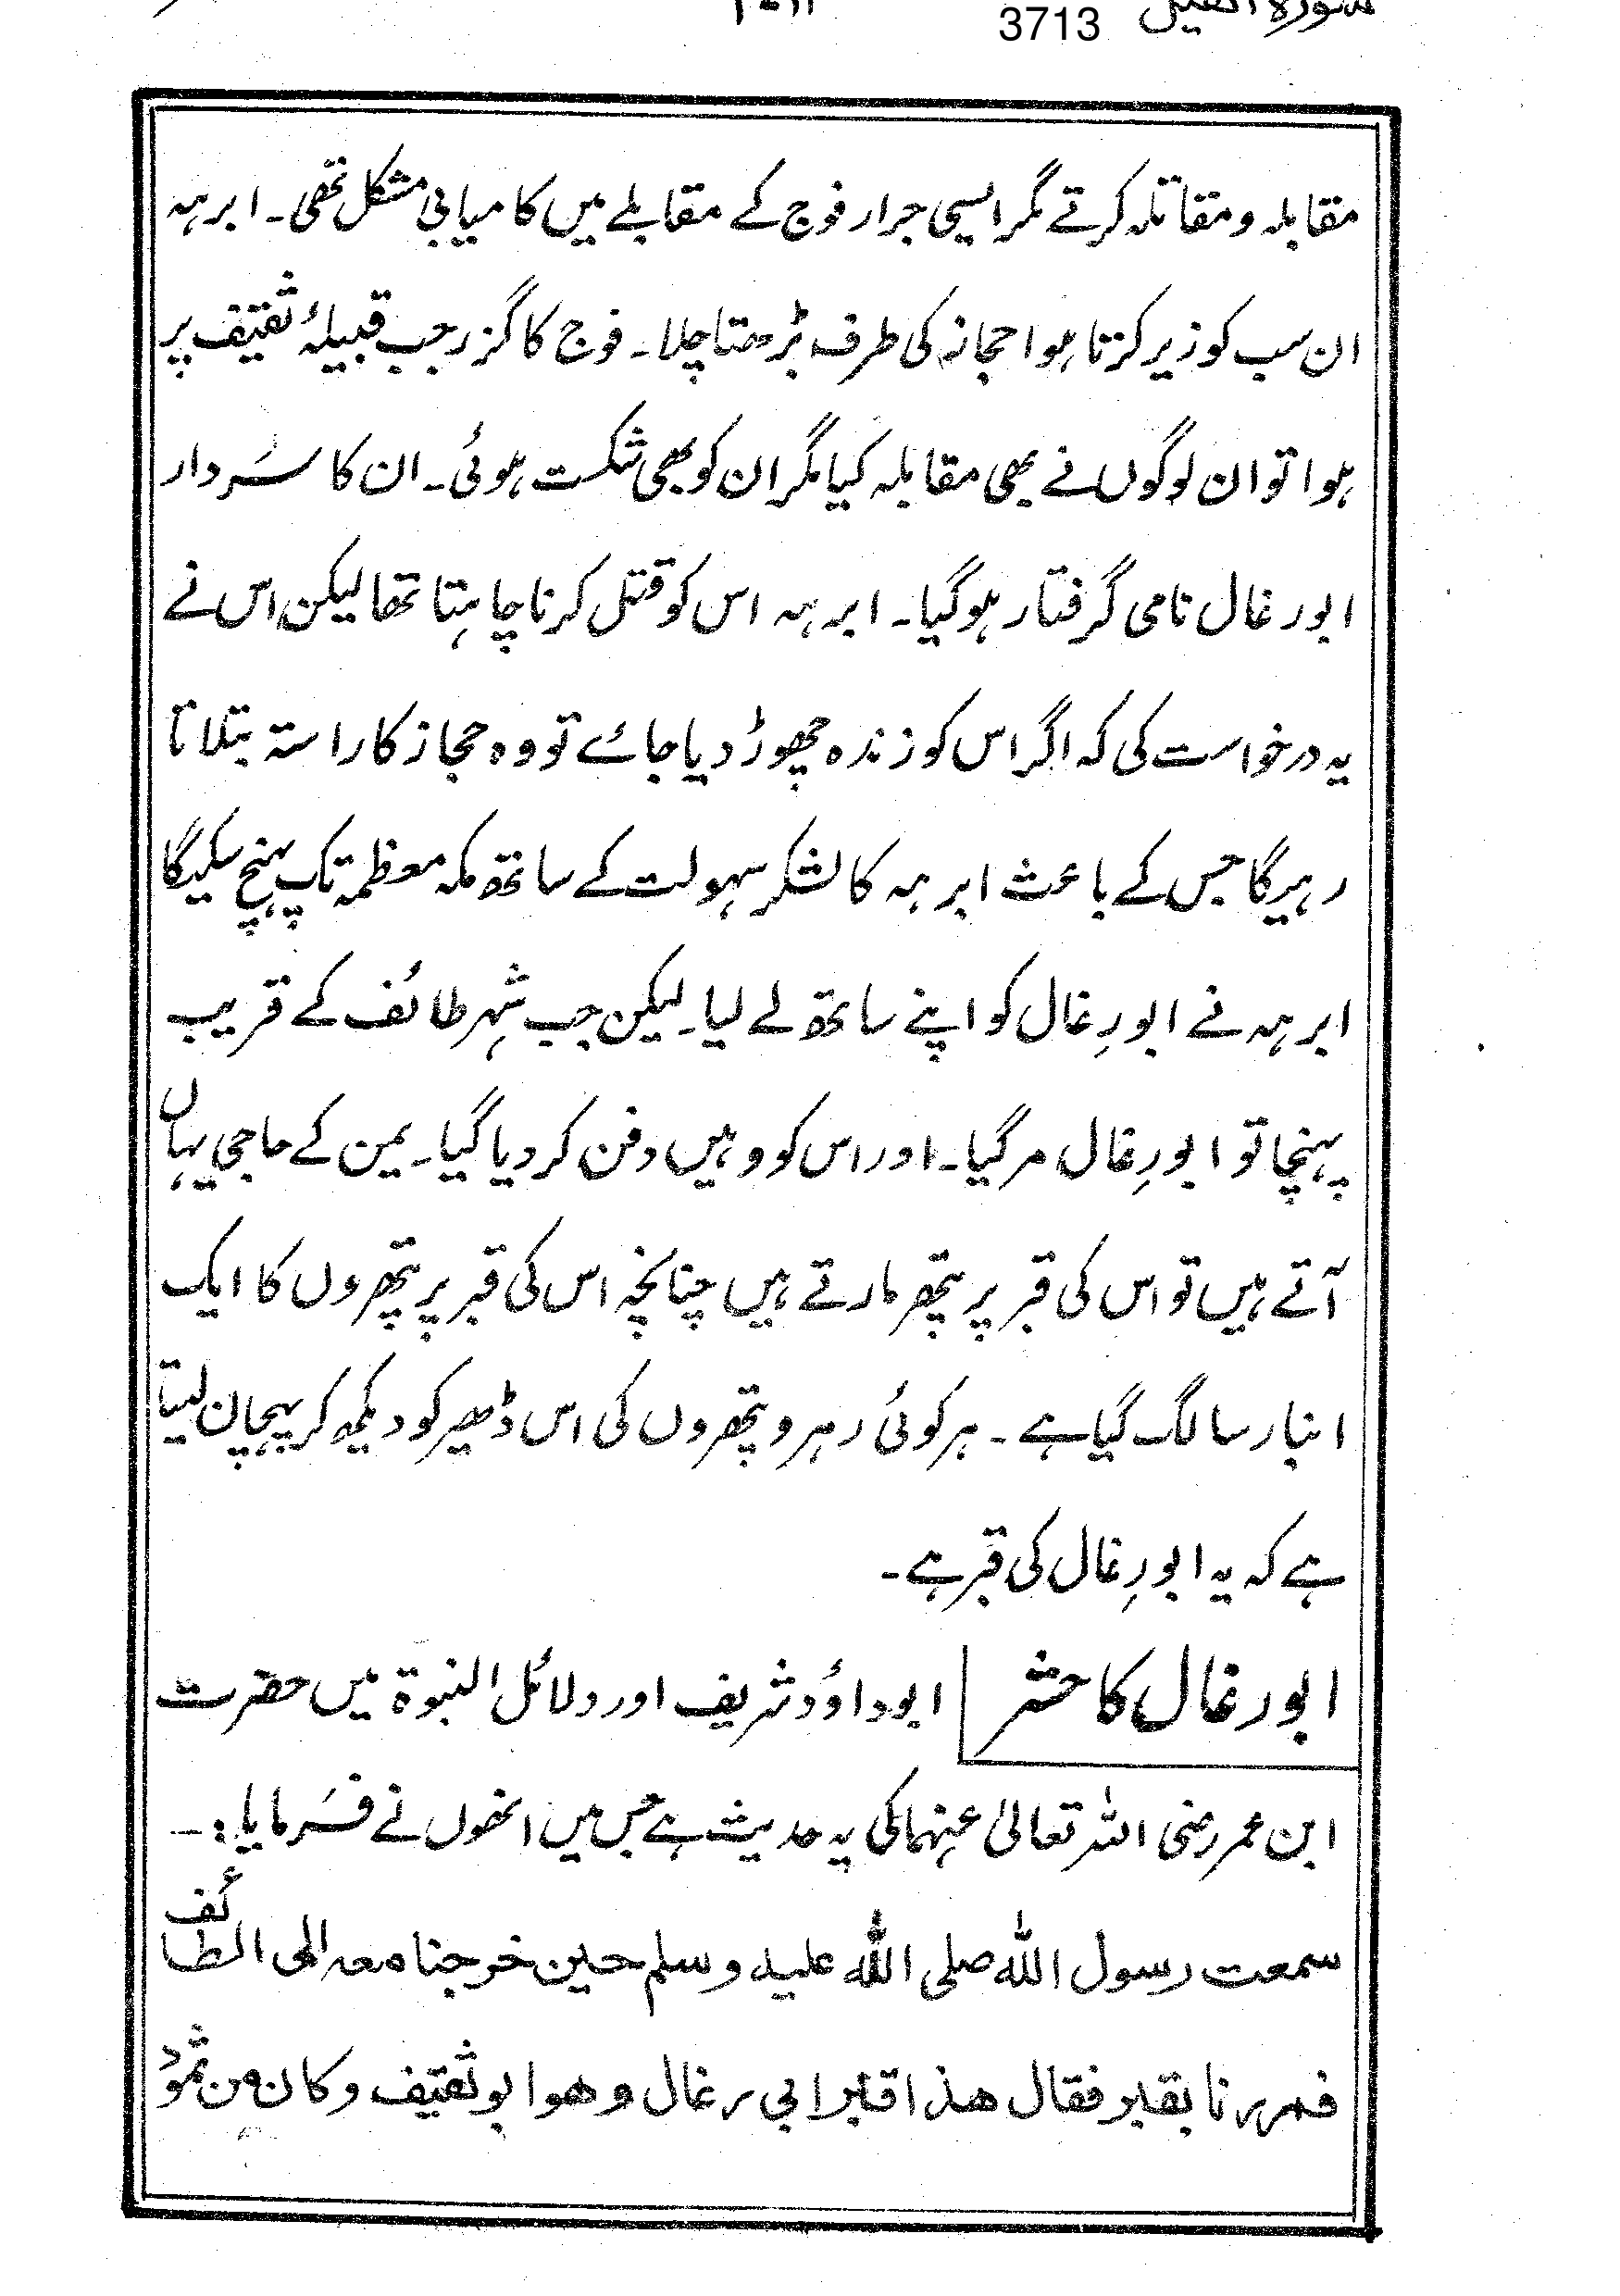 سورہ الفیل 3713
مقابلہ و مقاتلہ کرتے مگر ایسی جرار فوج کے مقابلے میں کامیابی مشکل تھی۔ ابرہہ
ان سب کو زیر کرتا ہوا حجاز کی طرف بڑھتا چلا۔ فوج کا گزر جب قبیلۂ ثقیف پر
ہوا تو ان لوگوں نے بھی مقابلہ کیا مگر ان کو بھی شکست ہوئی۔ ان کا سَردار
ابو رغال نامی گرفتار ہو گیا۔ ابرہہ اس کو قتل کرنا چاہتا تھا لیکن اس نے
یہ درخواست کی کہ اگر اس کو زندہ چھوڑ دیا جائے تو وہ حجاز کا راستہ بتلاتا
رہیگا جس کے باعث ابرہہ کا لشکر سہولت کے ساتھ مکہ معظمہ تک پہنچ سکیگا
ابرہہ نے ابو رِغال کو اپنے ساتھ لے لیا۔ لیکن جب شہر طائف کے قریب
پہنچا تو ابو رِغال مر گیا۔ اور اس کو وہیں دفن کر دیا گیا۔ یمن کے حاجی یہاں
آتے ہیں تو اس کی قبر پر پتھر مارتے ہیں چنانچہ اس کی قبر پر پتھروں کا ایک
انبار سا لگ گیا ہے۔ ہر کوئی رہرو پتھروں کی اس ڈھیر کو دیکھ کر پہچان لیتا
ہے کہ یہ ابو رِغال کی قبر ہے۔
ابو رغال کا حشر ابو داؤد شریف اور دلائل النبوۃ میں حضرت
ابن عمر رضی اللہ تعالیٰ عنہما کی یہ حدیث ہے جس میں انھوں نے فَرمایا:۔
سمعت رسول اللہ صلی اللہ علیہ وسلم حین خرجنا معہ الی الطائف
فمررنا بقبر فقال ھذا قبر ابی رغال وھو ابو ثقیف وکان من ثمود